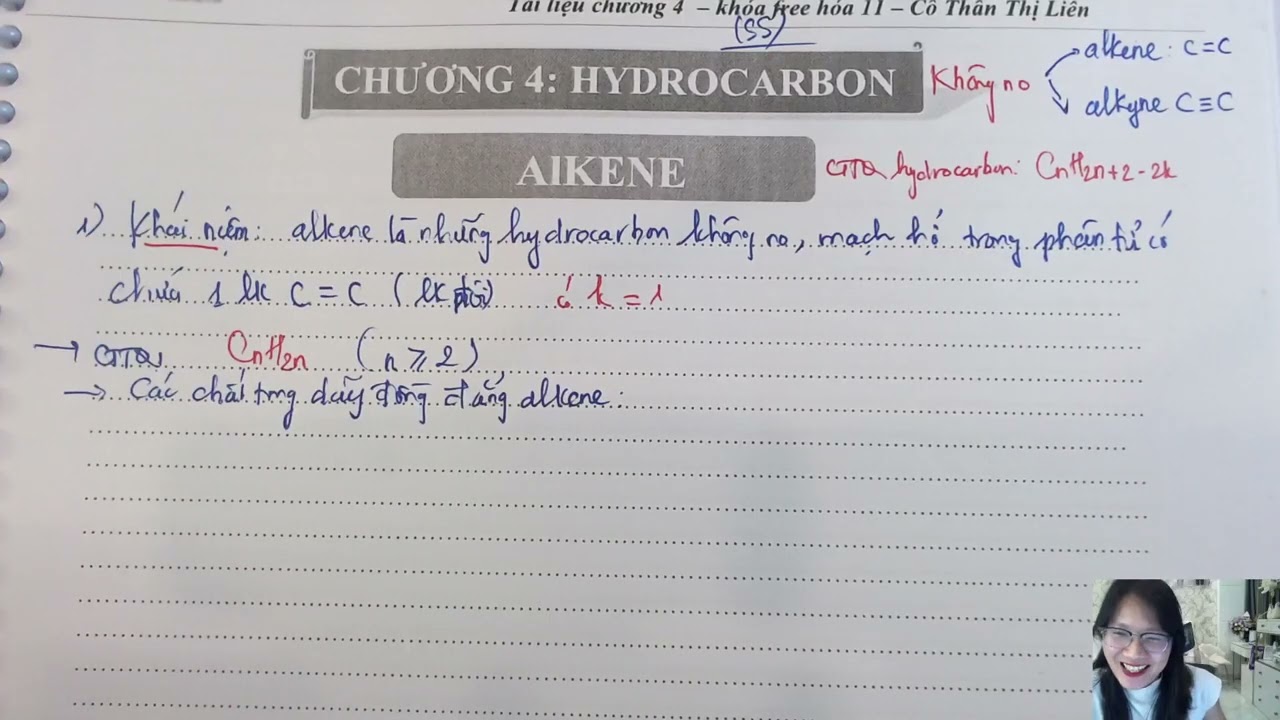 Tài liệu chương 4 – khóa free hóa 11 – Cô Thân Thị Liên
(SS)
CHƯƠNG 4: HYDROCARBON không no
alkene: C=C
alkyne C≡C
AlKENE
CTTQ hydrocarbon: CnH2n+2-2k
1) Khái niệm: alkene là những hydrocarbon không no, mạch hở trong phân tử có
chứa 1 lk C=C (lk đôi) có k=1
→ CTTQ CnH2n (n ≥ 2)
→ Các chất trong dãy đồng đẳng alkene: